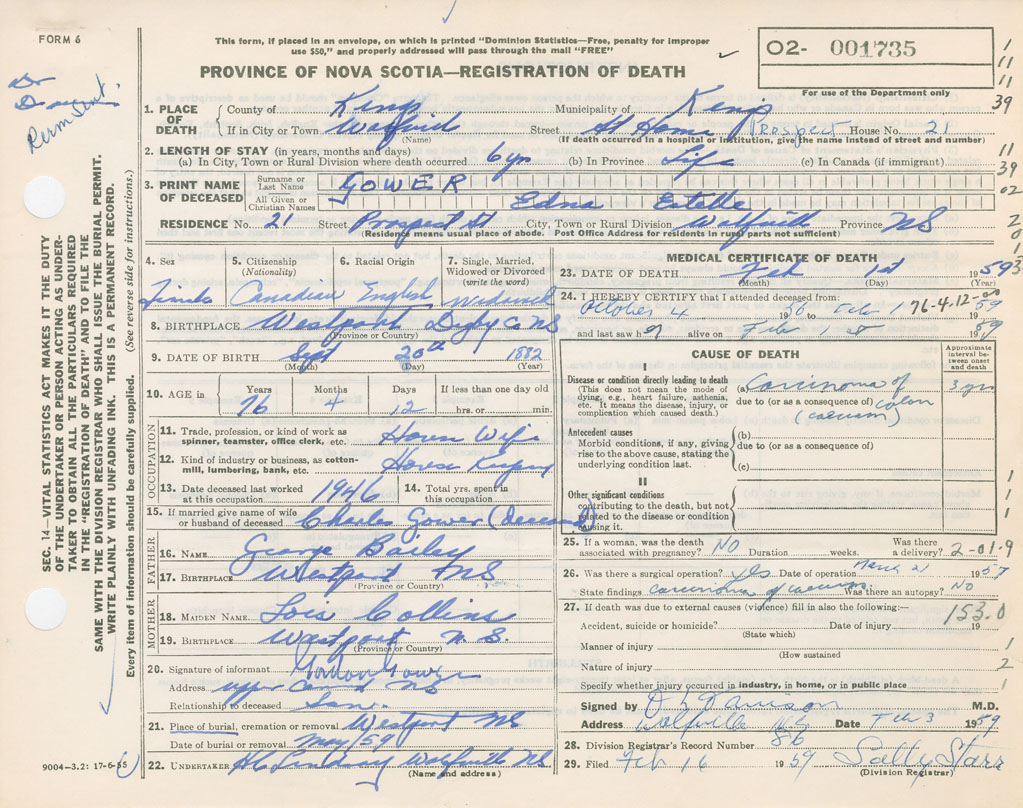 FORM 6
This form, if placed in an envelope, on which is printed "Dominion Statistics—Free, penalty for improper
use $50," and properly addressed will pass through the mail "FREE"
PROVINCE OF NOVA SCOTIA—REGISTRATION OF DEATH
O2- 001735
For use of the Department only
Perm Sent.
SEC. 14—VITAL STATISTICS ACT MAKES IT THE DUTY
OF THE UNDERTAKER OR PERSON ACTING AS UNDER-
TAKER TO OBTAIN ALL THE PARTICULARS REQUIRED
IN THE "REGISTRATION OF DEATH" AND FILE THE
SAME WITH THE DIVISION REGISTRAR WHO SHALL ISSUE THE BURIAL PERMIT.
WRITE PLAINLY WITH UNFADING INK. THIS IS A PERMANENT RECORD.
Every item of information should be carefully supplied. (See reverse side for instructions.)
1. PLACE OF DEATH County of Kings Municipality of Kings
If in City or Town Street At Home Prospect House No. 21
(Name) (If death occurred in a hospital or institution, give the name instead of street and number)
2. LENGTH OF STAY (in years, months and days)
(a) In City, Town or Rural Division where death occurred 6 yrs (b) In Province Life (c) In Canada (if immigrant)
3. PRINT NAME OF DECEASED Surname or Last Name GOWER
All Given or Christian Names Edna Estelle
RESIDENCE No. 21 Street Prospect St City, Town or Rural Division Wolfville Province NS
(Residence means usual place of abode. Post Office Address for residents in rural parts not sufficient)
4. Sex 5. Citizenship (Nationality) 6. Racial Origin 7. Single, Married, Widowed or Divorced (write the word)
Female Canadian English Widowed
8. BIRTHPLACE Westport Digby Co NS
(Province or Country)
9. DATE OF BIRTH Sept 20th 1882
(Month) (Day) (Year)
10. AGE in Years Months Days If less than one day old
76 4 12 hrs. or min.
OCCUPATION
11. Trade, profession, or kind of work as spinner, teamster, office clerk, etc. House Wife
12. Kind of industry or business, as cotton-mill, lumbering, bank, etc. House Keeping
13. Date deceased last worked at this occupation 1946 14. Total yrs. spent in this occupation
15. If married give name of wife or husband of deceased Charles Gower (Deceased)
FATHER
16. NAME George Bailey
17. BIRTHPLACE Westport NS
(Province or Country)
MOTHER
18. MAIDEN NAME Lois Collins
19. BIRTHPLACE Westport N.S.
(Province or Country)
20. Signature of informant Gordon Gower
Address NS
Relationship to deceased Son
21. Place of burial, cremation or removal Westport NS
Date of burial or removal May/59
22. UNDERTAKER Wolfville NS
(Name and address)
9004-3.2: 17-6-55
MEDICAL CERTIFICATE OF DEATH
23. DATE OF DEATH Feb 1st 1959
(Month) (Day) (Year)
24. I HEREBY CERTIFY that I attended deceased from:
October 4 to Feb 1 1959
76-4-12-00
and last saw her alive on Feb 1st 1959
CAUSE OF DEATH
Approximate interval between onset and death
I
Disease or condition directly leading to death
(This does not mean the mode of dying, e.g., heart failure, asthenia, etc. It means the disease, injury, or complication which caused death.)
(a) Carcinoma of 3 yrs
due to (or as a consequence of) colon
(caecum)
Antecedent causes
Morbid conditions, if any, giving rise to the above cause, stating the underlying condition last.
(b)
due to (or as a consequence of)
(c)
II
Other significant conditions contributing to the death, but not related to the disease or condition causing it.
25. If a woman, was the death associated with pregnancy? NO Duration weeks. Was there a delivery?
2-01.9
26. Was there a surgical operation? Yes Date of operation March 2 1957
State findings carcinoma of caecum Was there an autopsy? NO
27. If death was due to external causes (violence) fill in also the following:—
153.0
Accident, suicide or homicide? Date of injury 19
(State which)
Manner of injury
(How sustained
Nature of injury
Specify whether injury occurred in industry, in home, or in public place
Signed by Davison M.D.
Address Wolfville NS Date Feb 3 1959
28. Division Registrar's Record Number 86
29. Filed Feb 16 1959 Sally Starr
(Division Registrar)